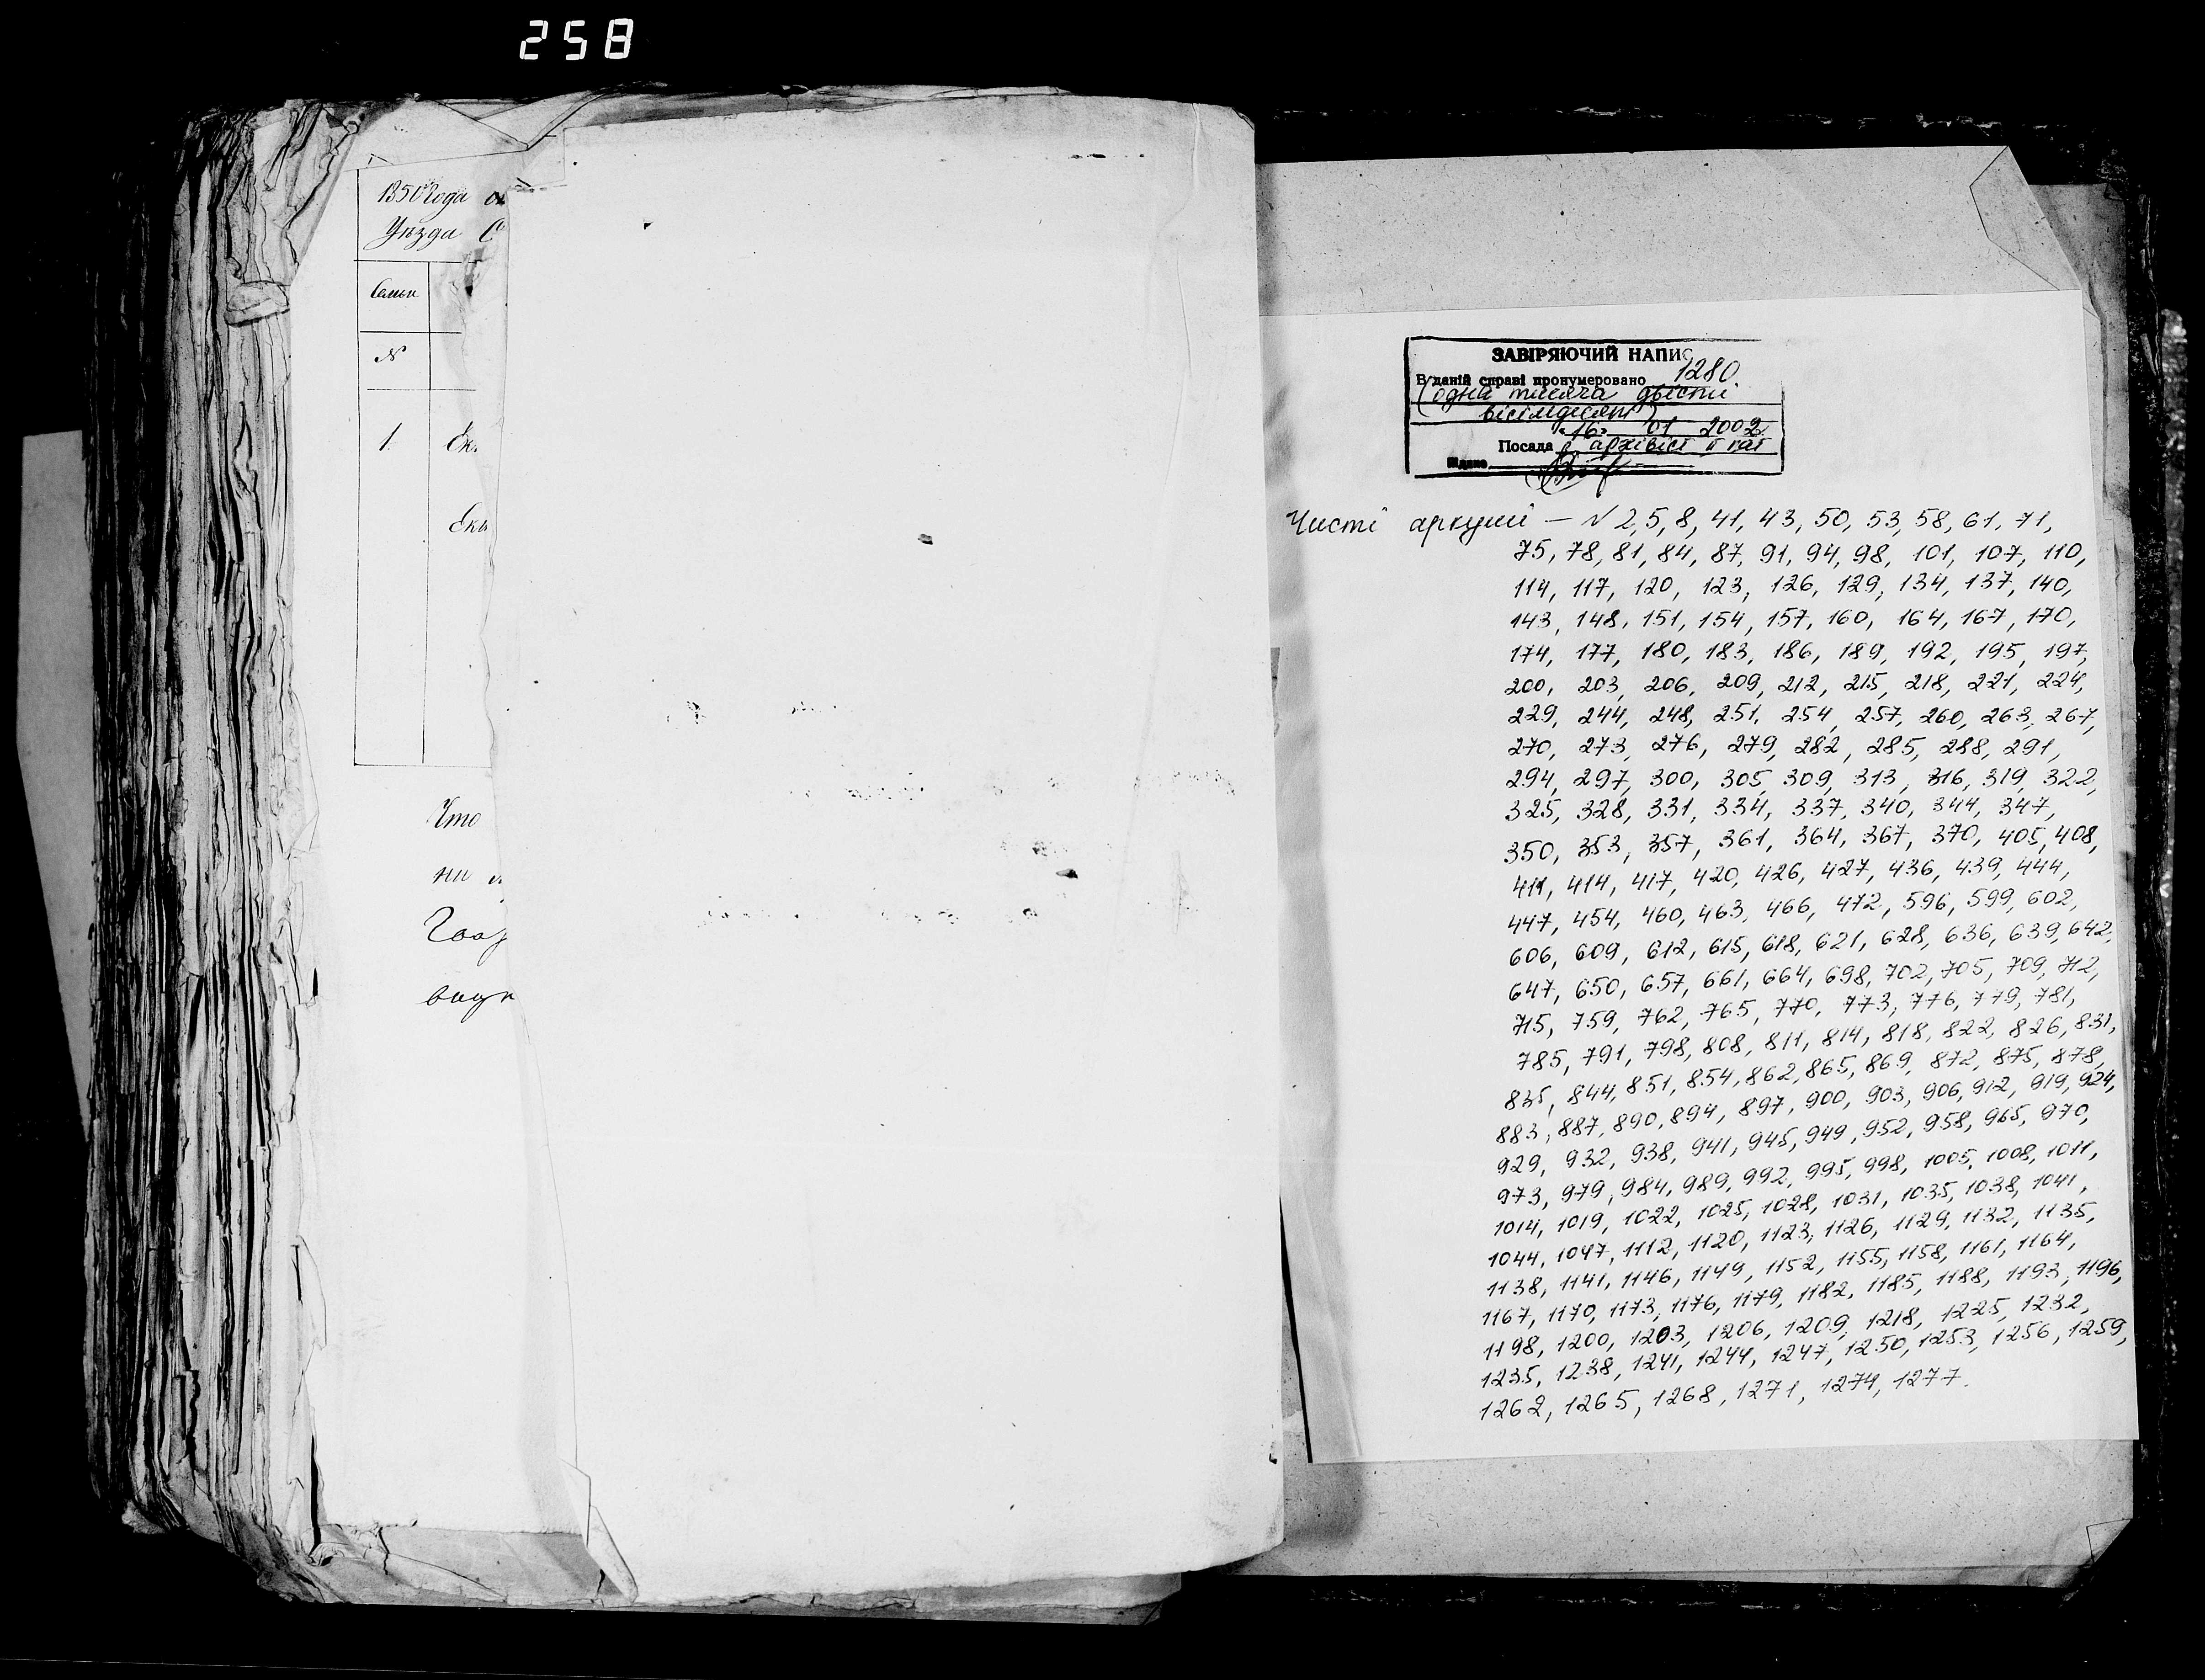 258
1850 года
Уезда
Семьи
N
1.
Что
ни
ЗАВІРЯЮЧИЙ НАПИС
В даній справі пронумеровано 1280.
(одна тисяча двісті
вісімдесят)
«16» 01 2002
Посада архівіст II кат
Чисті аркуші — N 2, 5, 8, 41, 43, 50, 53, 58, 61, 71,
75, 78, 81, 84, 87, 91, 94, 98, 101, 107, 110,
114, 117, 120, 123, 126, 129, 134, 137, 140,
143, 148, 151, 154, 157, 160, 164, 167, 170,
174, 177, 180, 183, 186, 189, 192, 195, 197,
200, 203, 206, 209, 212, 215, 218, 221, 224,
229, 244, 248, 251, 254, 257, 260, 263, 267,
270, 273, 276, 279, 282, 285, 288, 291,
294, 297, 300, 305, 309, 313, 316, 319, 322,
325, 328, 331, 334, 337, 340, 344, 347,
350, 353, 357, 361, 364, 367, 370, 405, 408,
411, 414, 417, 420, 426, 427, 436, 439, 444,
447, 454, 460, 463, 466, 472, 596, 599, 602,
606, 609, 612, 615, 618, 621, 628, 636, 639, 642,
647, 650, 657, 661, 664, 698, 702, 705, 709, 712,
715, 759, 762, 765, 770, 773, 776, 779, 781,
785, 791, 798, 808, 811, 814, 818, 822, 826, 831,
835, 844, 851, 854, 862, 865, 869, 872, 875, 878,
883, 887, 890, 894, 897, 900, 903, 906, 912, 919, 924,
929, 932, 938, 941, 945, 949, 952, 958, 965, 970,
973, 979, 984, 989, 992, 995, 998, 1005, 1008, 1011,
1014, 1019, 1022, 1025, 1028, 1031, 1035, 1038, 1041,
1044, 1047, 1112, 1120, 1123, 1126, 1129, 1132, 1135,
1138, 1141, 1146, 1149, 1152, 1155, 1158, 1161, 1164,
1167, 1170, 1173, 1176, 1179, 1182, 1185, 1188, 1193, 1196,
1198, 1200, 1203, 1206, 1209, 1218, 1225, 1232,
1235, 1238, 1241, 1244, 1247, 1250, 1253, 1256, 1259,
1262, 1265, 1268, 1271, 1274, 1277.